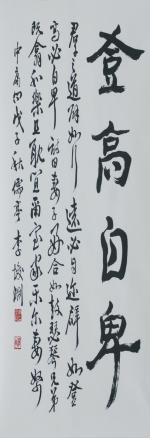 登高自卑
君子之道辟如行遠必自邇辟如登
高必自卑詩曰妻子好合如鼓瑟琴兄弟
既翕和樂且耽宜爾室家樂爾妻孥
中庸句戊子秋儒亭李